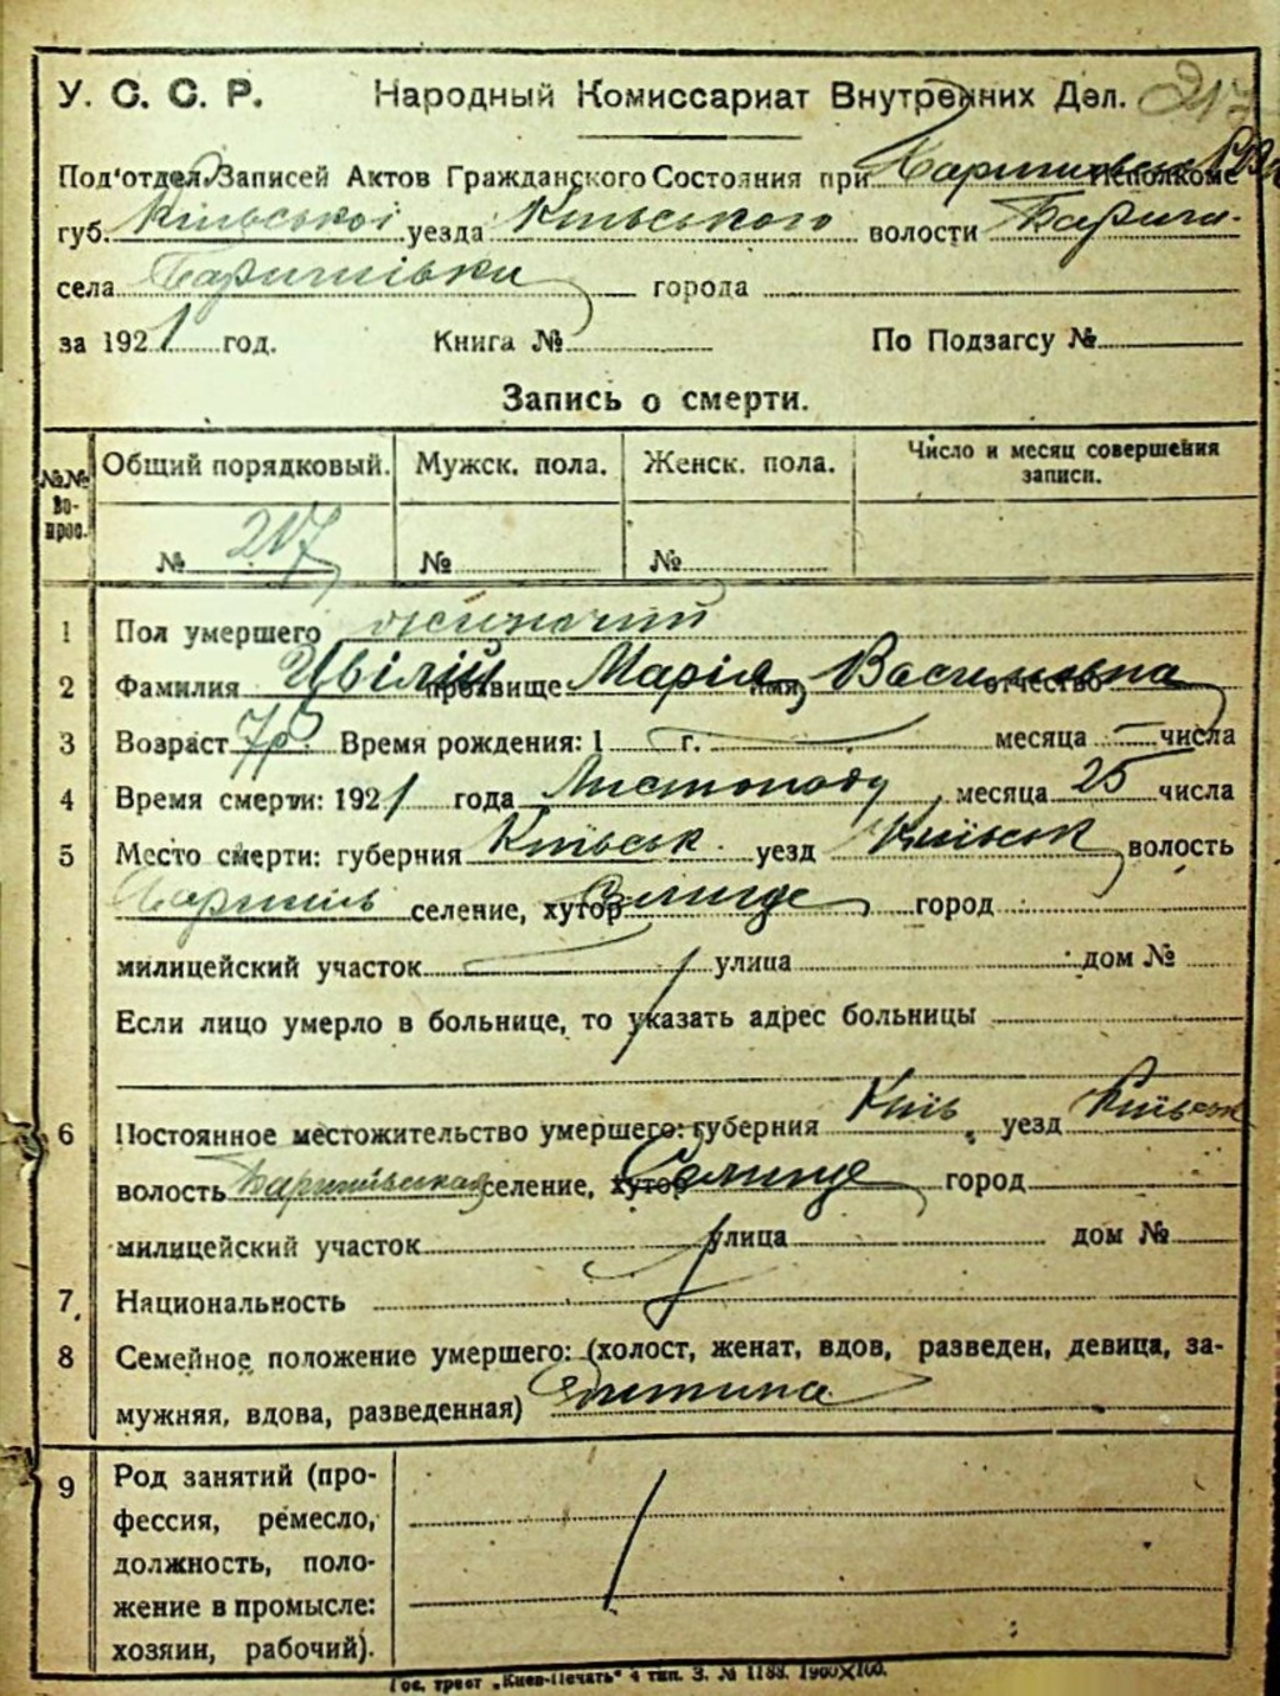 У. С. С. Р. Народный Комиссариат Внутренних Дел. 217
Под'отдел Записей Актов Гражданского Состояния при Исполкоме
губ. Київської уезда Київського волости Бариш-
села Баришівки города
за 1921 год. Книга № По Подзагсу №
Запись о смерти.
№№ во- прос. Общий порядковый. Мужск. пола. Женск. пола. Число и месяц совершения записи.
№ 217 № №
1 Пол умершего жіночий
2 Фамилия Цвілій прозвище Марія имя Василівна отчество
3 Возраст 7 р. Время рождения: 1 г. месяца числа
4 Время смерти: 1921 года Листопаду месяца 25 числа
5 Место смерти: губерния Київськ. уезд Київськ волость
Баришів селение, хутор Селище город
милицейский участок улица дом №
Если лицо умерло в больнице, то указать адрес больницы
6 Постоянное местожительство умершего: губерния Київ. уезд Київськ
волость Баришівська селение, хутор Селище город
милицейский участок улица дом №
7 Национальность
8 Семейное положение умершего: (холост, женат, вдов, разведен, девица, за-
мужняя, вдова, разведенная) Дитина
9 Род занятий (про-
фессия, ремесло,
должность, поло-
жение в промысле:
хозяин, рабочий).
Гос. трест „Киев-Печать" 4 тип. З. № 1188. 1900×100.